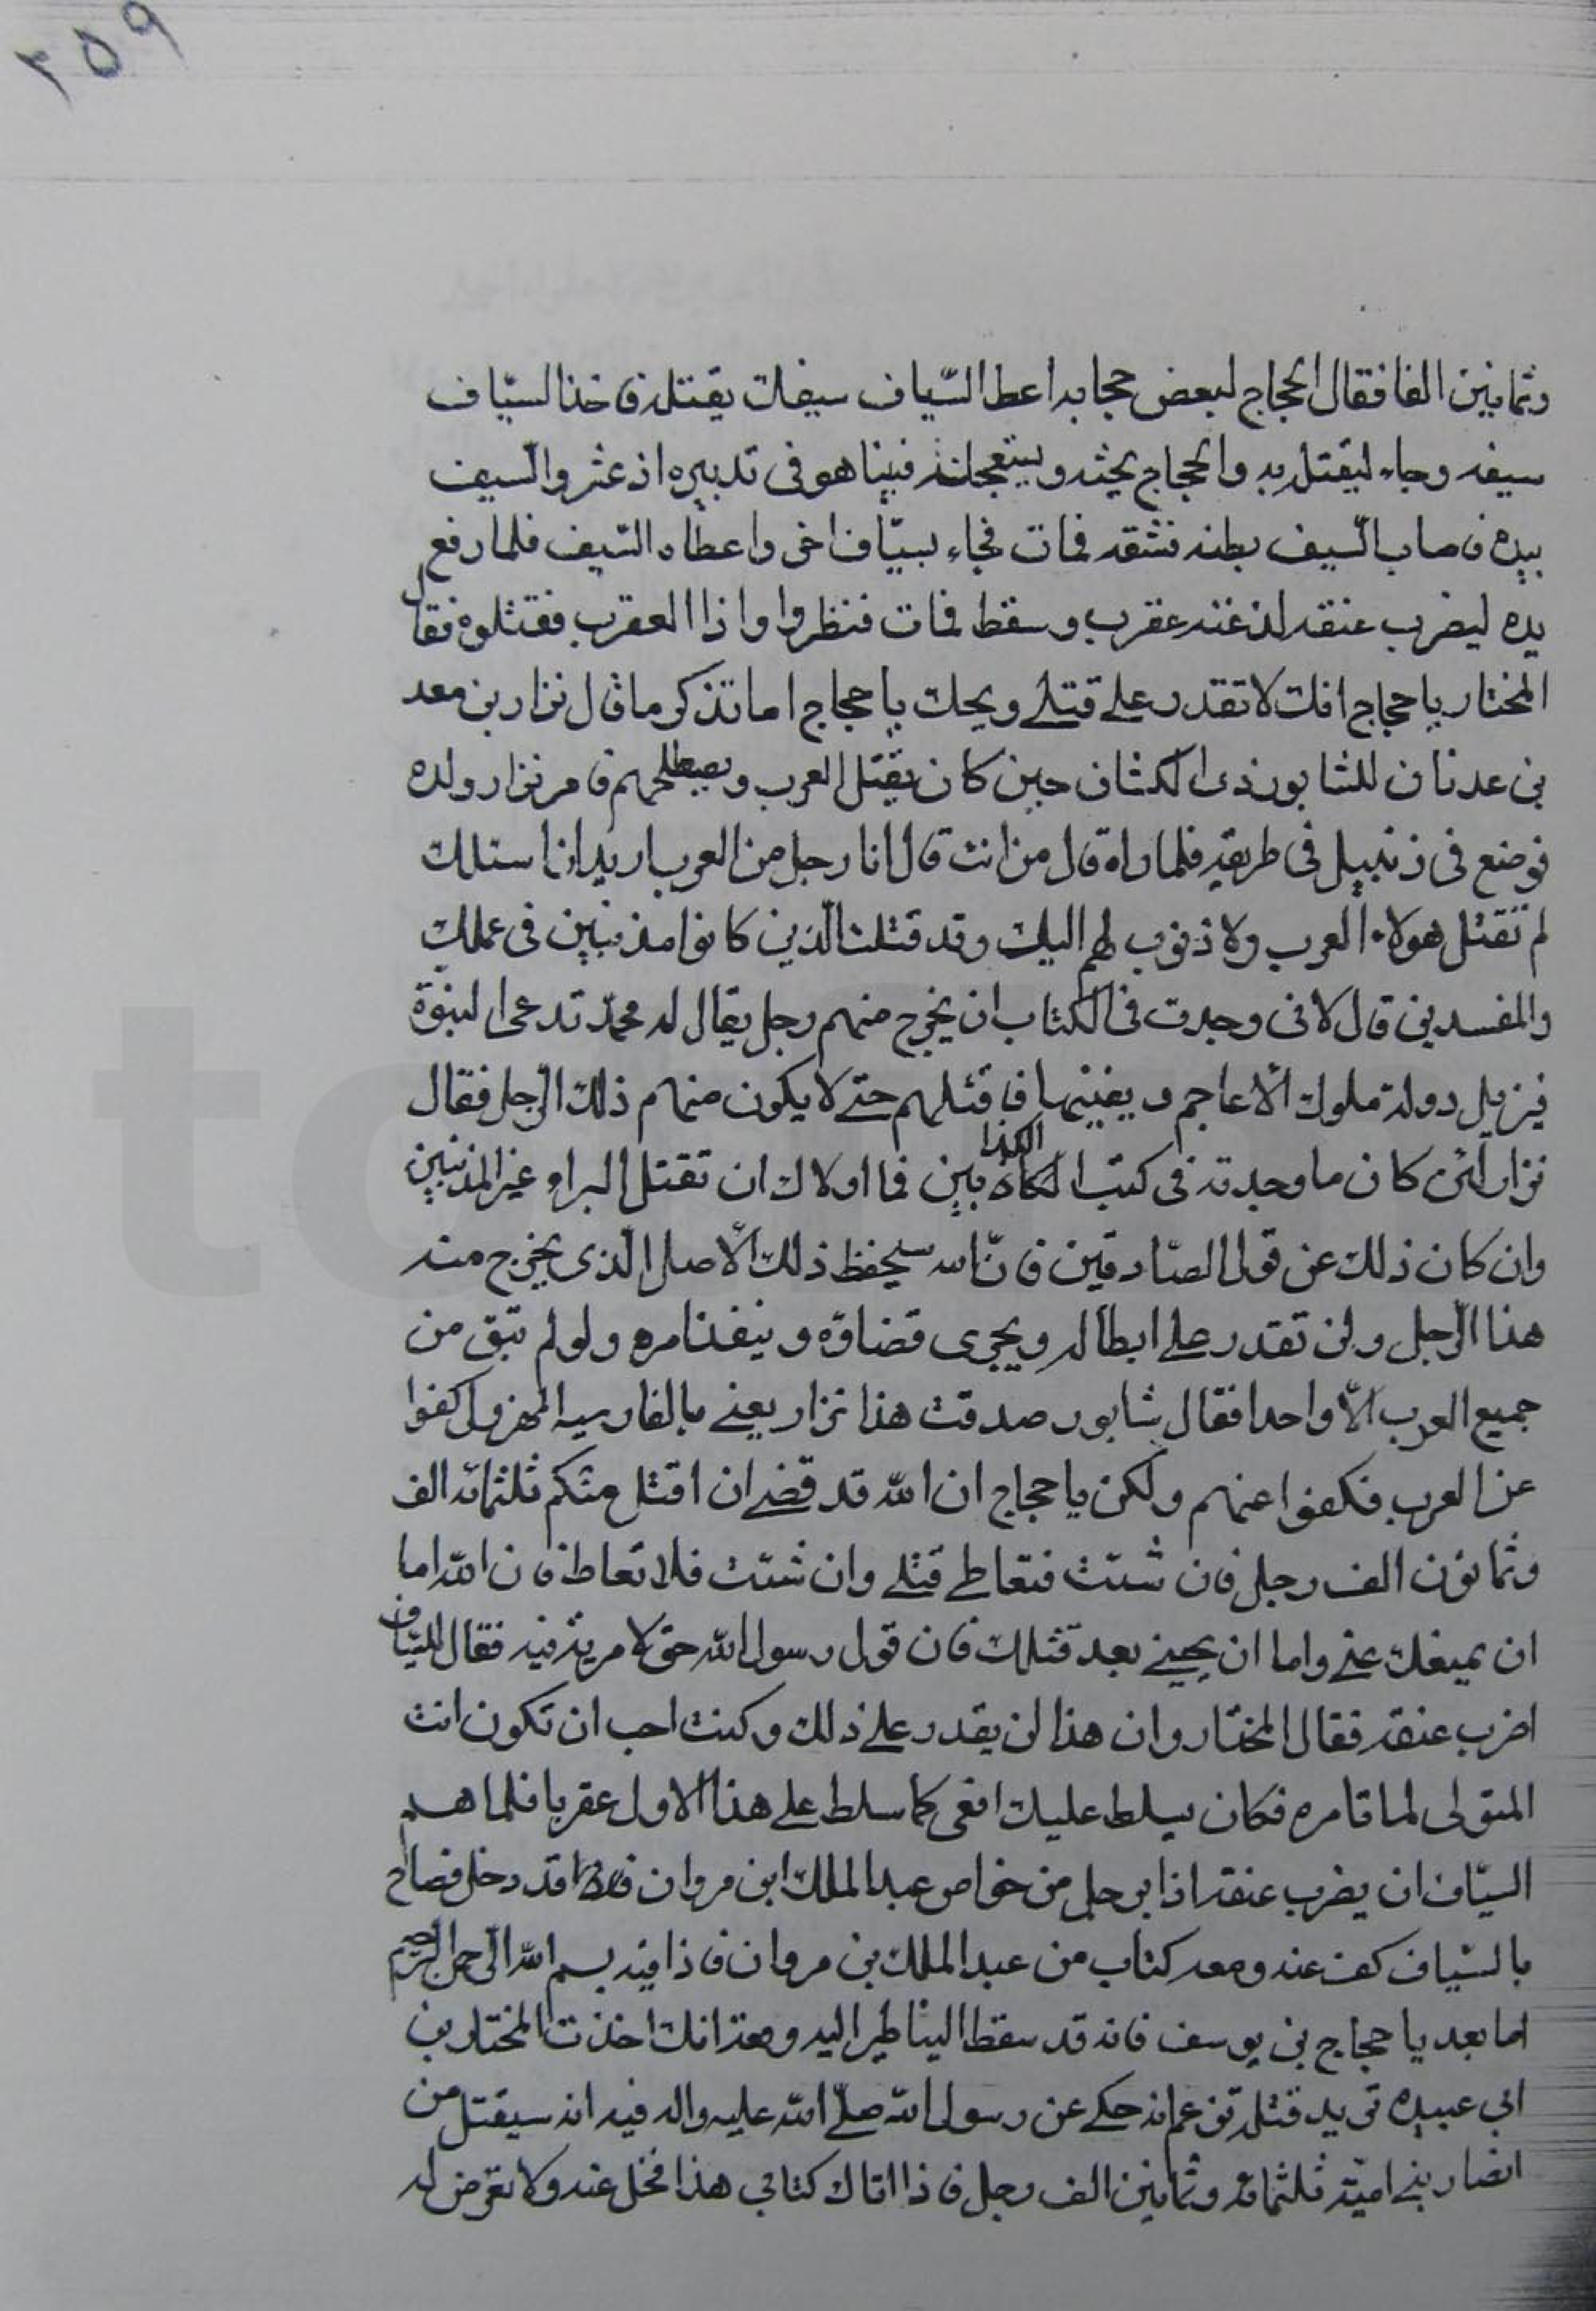 ٢٥٩
وثمانين الفا فقال الحجاج لبعض حجابه اعط السّياف سيفك يقتله فاخذ السيّاف
سيفه وجاء ليقتله به والحجاج يحثه ويستعجله فبينا هو فى تدبيره اذ عثر والسّيف
بيده فاصاب السّيف بطنه فشقه فمات فجاء بسيّاف اخر واعطاه السّيف فلما رفع
يده ليضرب عنقه لدغته عقرب وسقط فمات فنظروا واذا العقرب فقتلوه فقال
المختار يا حجاج انك لا تقدر على قتلى ويحك يا حجاج اما تذكر ما قال نزار بن معد
بن عدنان للشابور ذى الاكتاف حين كان يقتل العرب ويصطلمهم فامر نزار ولده
فوضع فى زنبيل فى طريقه فلما راه قال من انت قال انا رجل من العرب اريد ان اسئلك
لم تقتل هولاء العرب ولا ذنوب لهم اليك وقد قتلت الّذين كانوا مذنبين فى عملك
والمفسدين قال لانى وجدت فى الكتاب ان يخرج منهم رجل يقال له محمّد تدعى النبوّة
فيزيل دولة ملوك الاعاجم ويفنيها فاقتلهم حتى لا يكون منهم ذلك الرّجل فقال
نزار لئن كان ما وجدته فى كتب الكذابين فما اولاك ان تقتل البراء غير المذنبين
وان كان ذلك عن قول الصّادقين فانّ الله سيحفظ ذلك الاصل الّذى يخرج منه
هذا الرّجل ولن تقدر على ابطاله ويجرى قضاؤه وينفذ امره ولو لم تبق من
جميع العرب الاّ واحدا فقال شابور صدقت هذا نزار يعنى بالفارسيه المهزول كفوا
عن العرب فكفوا عنهم ولكن يا حجاج ان الله قد قضى ان اقتل منكم ثلثمائه الف
وثمانون الف رجل فان شئت فتعاطى قتلى وان شئت فلا تعاط فان الله اما
ان يمنعك عنى واما ان يحيينى بعد قتلك فان قول رسول الله حق لا مرية فيه فقال للسّياف
اضرب عنقه فقال المختار وان هذا لن يقدر على ذلك وكنت احب ان تكون انت
المتولى لما تامره فكان يسلط عليك افعى كما سلط على هذا الاول عقربا فلما هم
السيّاف ان يضرب عنقه اذا برجل من خواص عبد الملك ابن مروان قد دخل فصاح
بالسّياف كف عنه ومعه كتاب من عبد الملك بن مروان فاذا فيه بسم الله الرّحمن الرّحيم
اما بعد يا حجاج بن يوسف فانه قد سقط الينا طير اليه ومعه انك اخذت المختار بن
ابى عبيده تريد قتله تزعم انه حكى عن رسول الله صلّى الله عليه واله فيه انه سيقتل من
انصار بنى اميّة ثلثمائه وثمانين الف رجل فاذا اتاك كتابى هذا فخل عنه ولا تعرض له